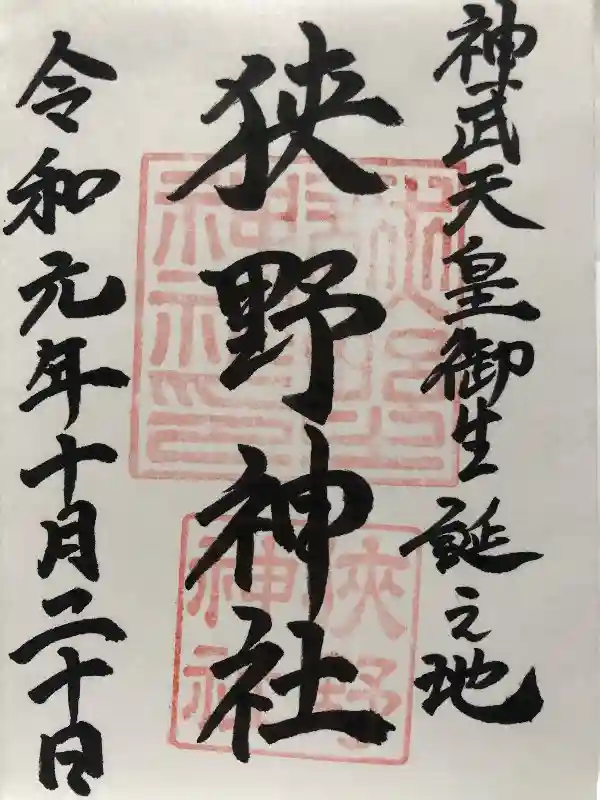 神武天皇御生誕之地
狭野神社
令和元年十月二十日
狭野
神社